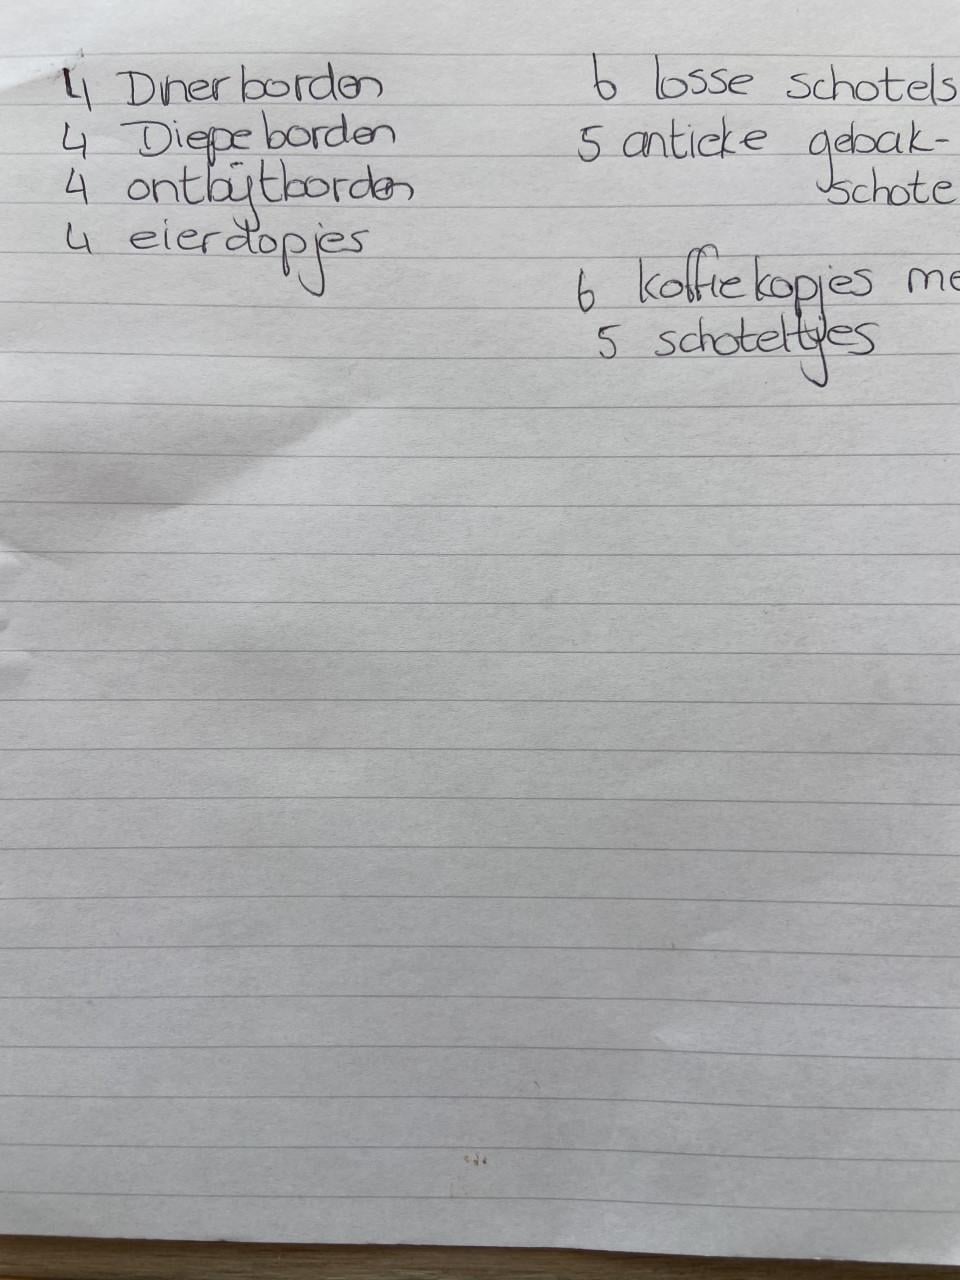 4 Dinerborden
4 Diepe borden
4 ontbijtborden
4 eierdopjes
6 losse schotels
5 antieke gebak-
schote
6 koffiekopjes me
5 schoteltjes